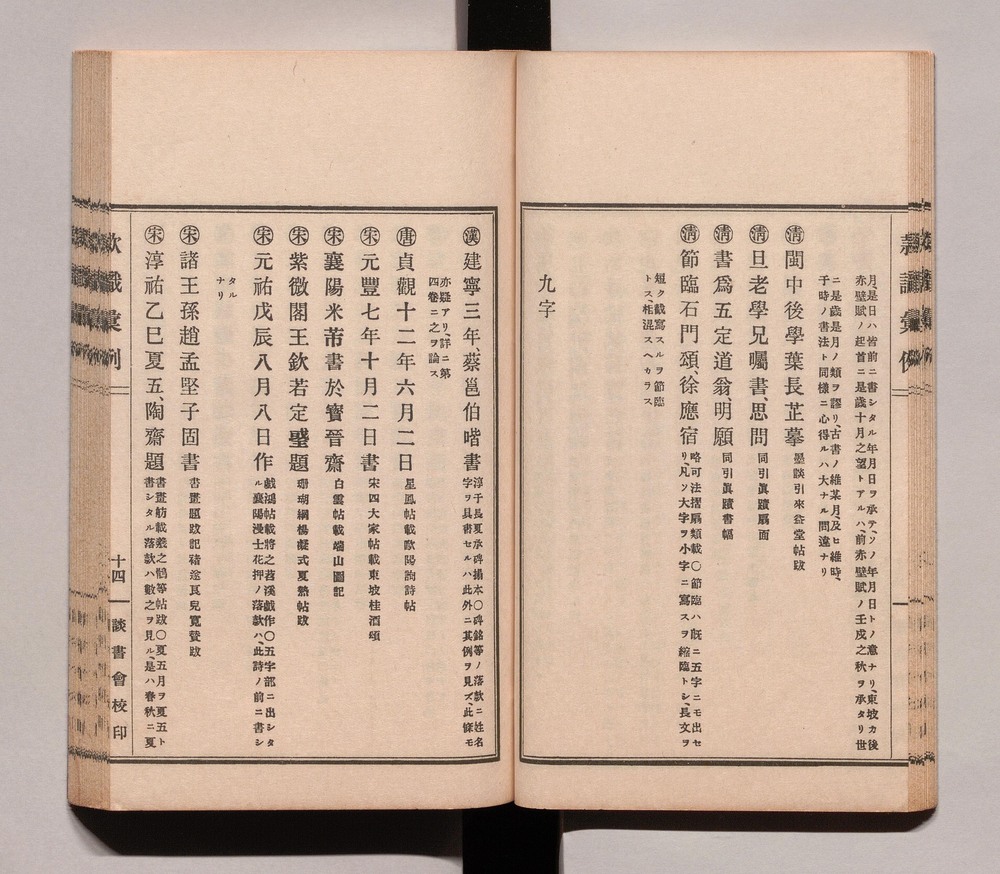 月、是日ハ皆前ニ書シタル年月日ヲ承テ、ソノ年月日トノ意ナリ、東坡カ後
赤壁賦ノ起首ニ是歳十月之望トアルハ、前赤壁賦ノ壬戌之秋ヲ承タリ世
ニ是歳是月ノ類ヲ謬リ、古書ノ維某月、及ヒ維時、
于時ノ書法ト同樣ニ心得ルハ大ナル間違ナリ
㊥清 閩中後學葉長芷摹 墨談引來益堂帖跋
清 旦老學兄囑書、思問 同引眞蹟扇面
清 書爲五定道翁、明願 同引眞蹟書幅
清 節臨石門頌、徐應宿 略可法摺扇類載〇節臨ハ既ニ五字ニモ出セ
リ、凡ソ大字ヲ小字ニ寫スヲ縮臨トシ、長文ヲ
短ク截寫スルヲ節臨
トス、相混スヘカラス
九字
漢 建寧三年、蔡邕伯喈書 淳于長夏承碑搨本〇碑銘等ノ落款ニ姓名
字ヲ具書セルハ此外ニ其例ヲ見ズ、此條モ
亦疑アリ、詳ニ第
四卷ニ之ヲ論ス
唐 貞觀十二年六月二日 星鳳帖載歐陽詢詩帖
宋 元豐七年十月二日書 宋四大家帖載東坡桂酒頌
宋 襄陽米芾書於寶晉齋 白雲帖載端山圖記
宋 紫微閣王欽若定 題 珊瑚綱楊凝式夏熱帖跋
宋 元祐戊辰八月八日作 戲鴻帖載將之苕溪戲作〇五字部ニ出シタ
ル襄陽漫士花押ノ落款ハ、此詩ノ前ニ書シ
タル
ナリ
宋 諸王孫趙孟堅子固書 書畫題跋記褚遂良兒寛贊跋
宋 淳祐乙巳夏五、陶齋題 書畫舫載羲之鶻等帖跋〇夏五月ヲ夏五ト
書シタル落款ハ數之ヲ見ル、是ハ春秋ニ夏
款識彙例
十四
談書會校印